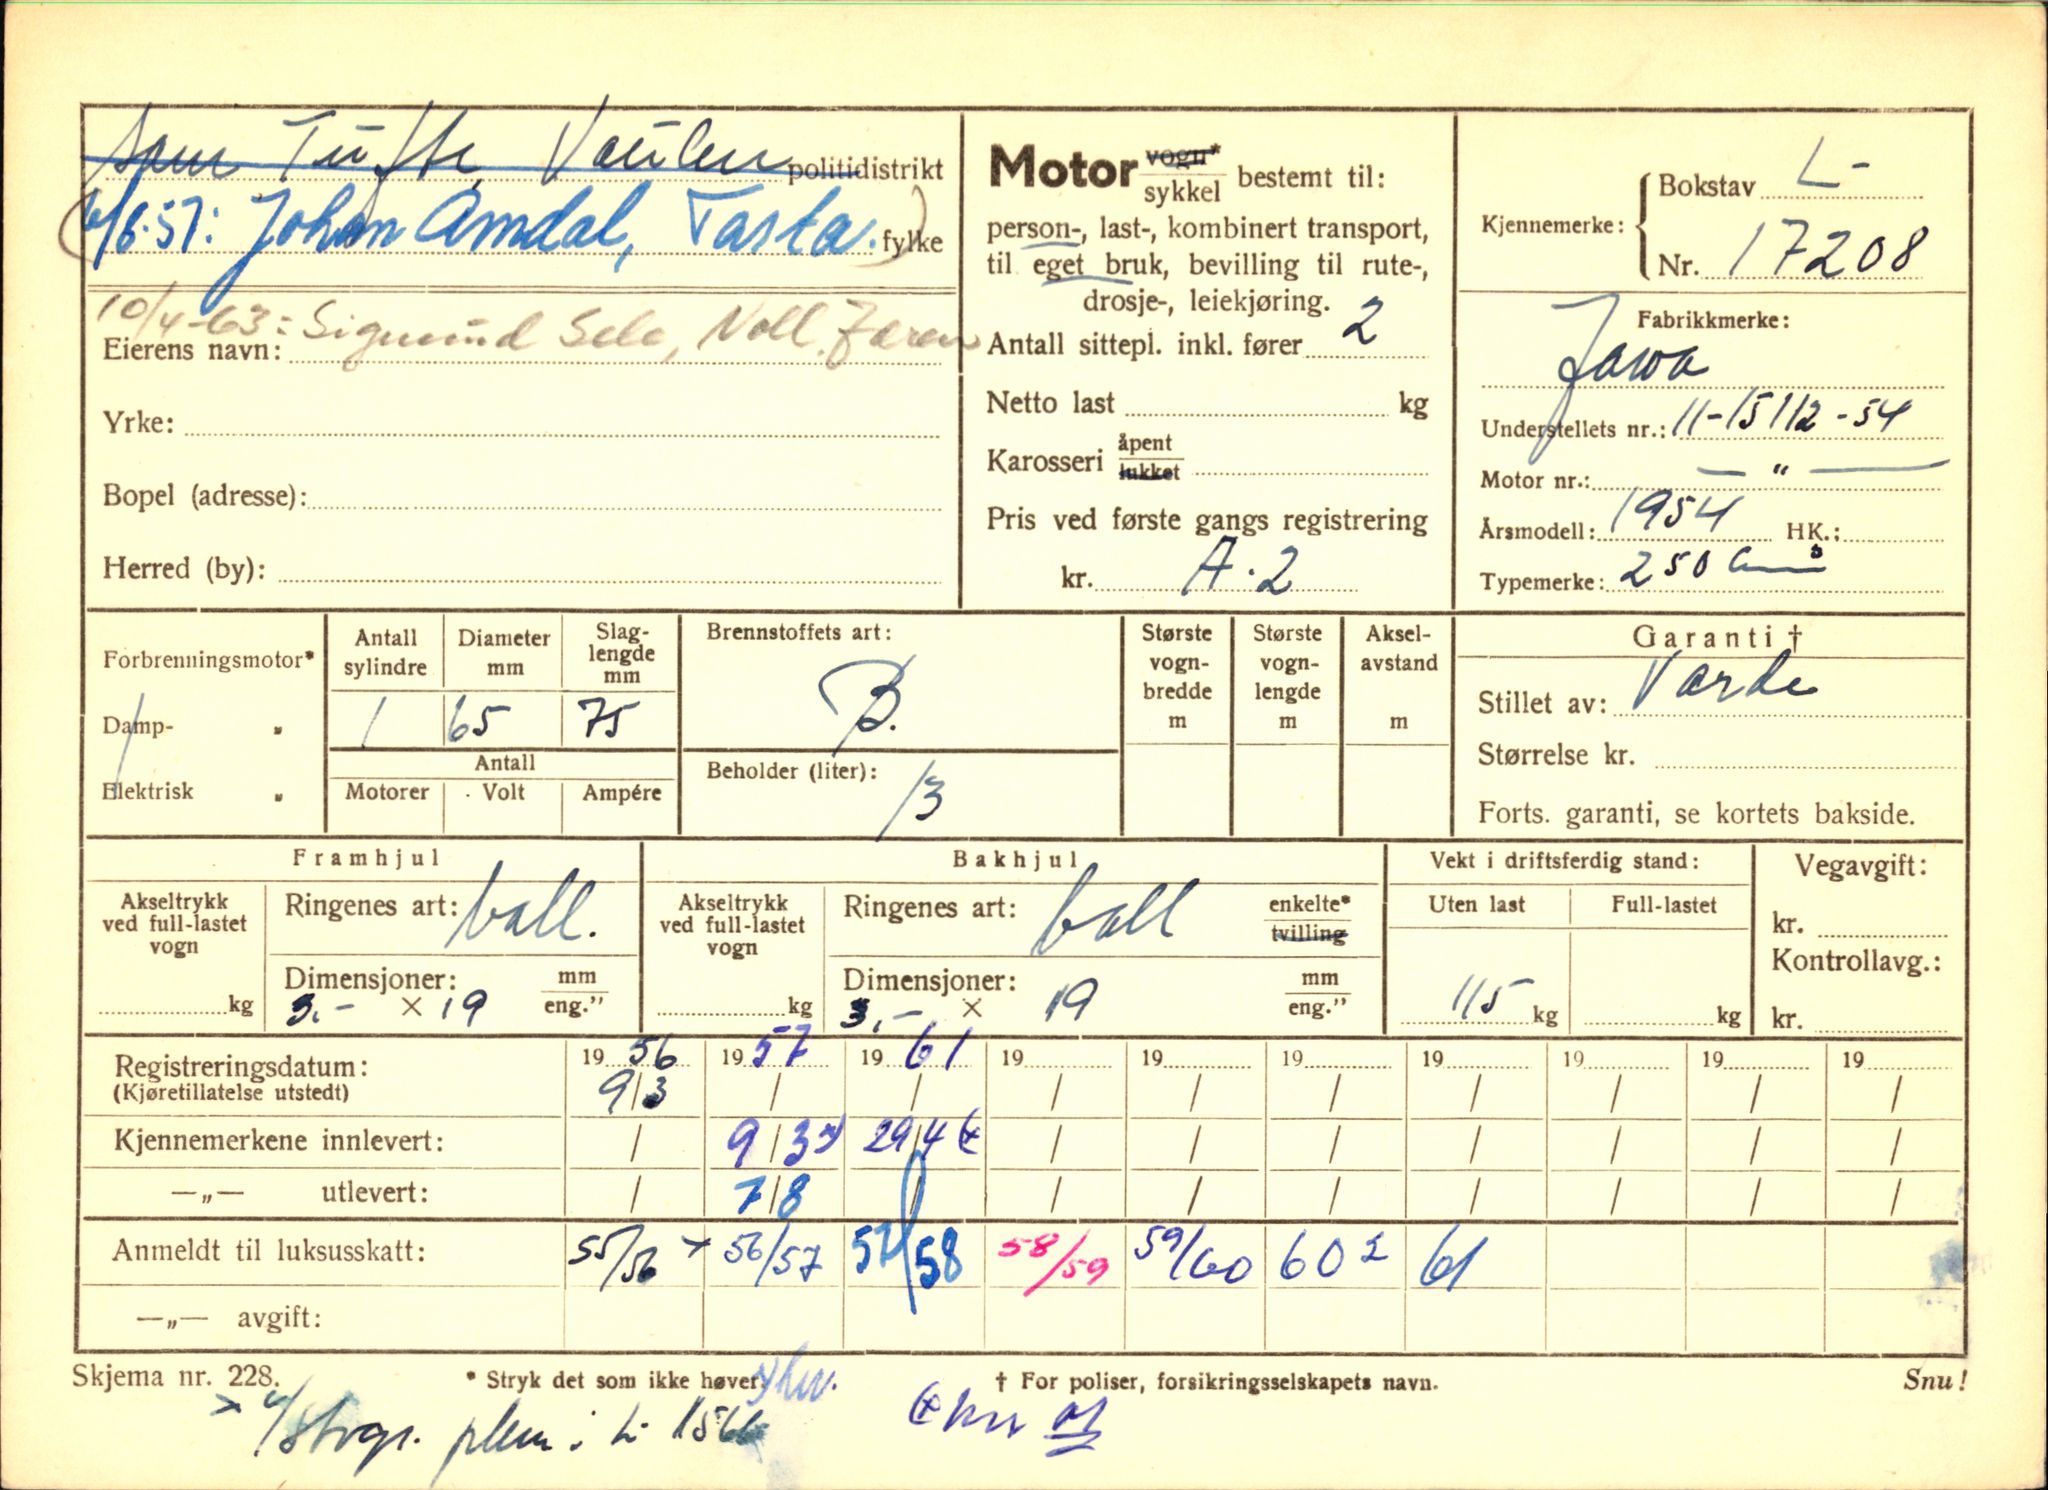 Arne Tufte, Vaulen politidistrikt
6/8.57: Johan Amdal, Tasta. fylke
10/4-63: Sigmund Sele, Voll. Jæren
Eierens navn:
Yrke:
Bopel (adresse):
Herred (by):
Motor vogn* / sykkel bestemt til:
person-, last-, kombinert transport,
til eget bruk, bevilling til rute-,
drosje-, leiekjøring.
Antall sittepl. inkl. fører 2
Netto last kg
Karosseri åpent / lukket
Pris ved første gangs registrering
kr. A.2
Kjennemerke: Bokstav L-
Nr. 17208
Fabrikkmerke:
Jawa
Understellets nr.: 11-15112-54
Motor nr.: — " —
Årsmodell: 1954 HK.:
Typemerke: 250 cm³
Forbrenningsmotor*
Damp- "
Elektrisk "
Antall sylindre Diameter mm Slag-lengde mm
1 65 75
Antall
Motorer Volt Ampére
Brennstoffets art:
B.
Beholder (liter):
13
Største vogn-bredde m
Største vogn-lengde m
Aksel-avstand m
Garanti †
Stillet av: Varde
Størrelse kr.
Forts. garanti, se kortets bakside.
Framhjul
Akseltrykk ved full-lastet vogn kg
Ringenes art: ball.
Dimensjoner: mm / eng."
3.- × 19
Bakhjul
Akseltrykk ved full-lastet vogn kg
Ringenes art: ball enkelte* / tvilling
Dimensjoner: mm / eng."
3.- × 19
Vekt i driftsferdig stand:
Uten last Full-lastet
115 kg kg
Vegavgift:
kr.
Kontrollavg.:
kr.
Registreringsdatum: 19 56 19 57 19 61 19 19 19 19 19 19 19
(Kjøretillatelse utstedt) 9/3 / / / / / / / / /
Kjennemerkene innlevert: / 9/3 29/4 / / / / / / /
—„— utlevert: / 7/8 / / / / / / / /
Anmeldt til luksusskatt: 55/56 × 56/57 57/58 58/59 59/60 60 2 61
—„— avgift:
Skjema nr. 228.
* Stryk det som ikke høver.
† For poliser, forsikringsselskapets navn.
Snu!